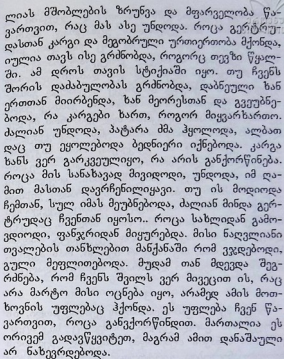 ლიას მშობლების ზრუნვა და მფარველობა წა-
ვართვით, რაც მას ასე უნდოდა. როცა გერტრუ-
დასთან კარგი და მეგობრული ურთიერთობა მქონდა,
იულია თავს ისე გრძნობდა, როგორც თევზი წყალ-
ში. ამ დროს თავის სტიქიაში იყო. თუ ჩვენს
შორის დაძაბულობას გრძნობდა, დაბნეული ხან
ერთთან მიირბენდა, ხან მეორესთან და გვეუბნე-
ბოდა, რა კარგები ხართ, როგორ მიყვარხართო.
ძალიან უნდოდა, პატარა ძმა ჰყოლოდა, ალბათ
დაც თუ ეყოლებოდა ბედნიერი იქნებოდა. კარგა
ხანს ვერ გარკვეულიყო, რა არის განქორწინება.
როცა მის სანახავად მივიდოდი, უნდოდა, იმ ღა-
მით მასთან დავრჩენილიყავი. თუ ის მოდიოდა
ჩემთან, სულ იმას მეუბნებოდა, ძალიან მინდა გერ-
ტრუდაც ჩვენთან იყოსო.. როცა სახლიდან გამო-
ვდიოდი, ფანჯრიდან მიყურებდა. მისი ნაღვლიანი
თვალების თანხლებით მანქანაში რომ ვჯდებოდი,
გული მეფლითებოდა. მუდამ თან მდევდა შეგ-
რძნება, რომ ჩვენს შვილს ვერ მივეცით ის, რაც
არა მარტო მისი ოცნება იყო, არამედ ამის მოთ-
ხოვნის უფლებაც ჰქონდა. ეს უფლება ჩვენ წა-
ვართვით, როცა განვქორწინდით. მართალია ეს
ორივემ გადავწყვიტეთ, მაგრამ ამით დანაშაული
არ ნახევრდებოდა.